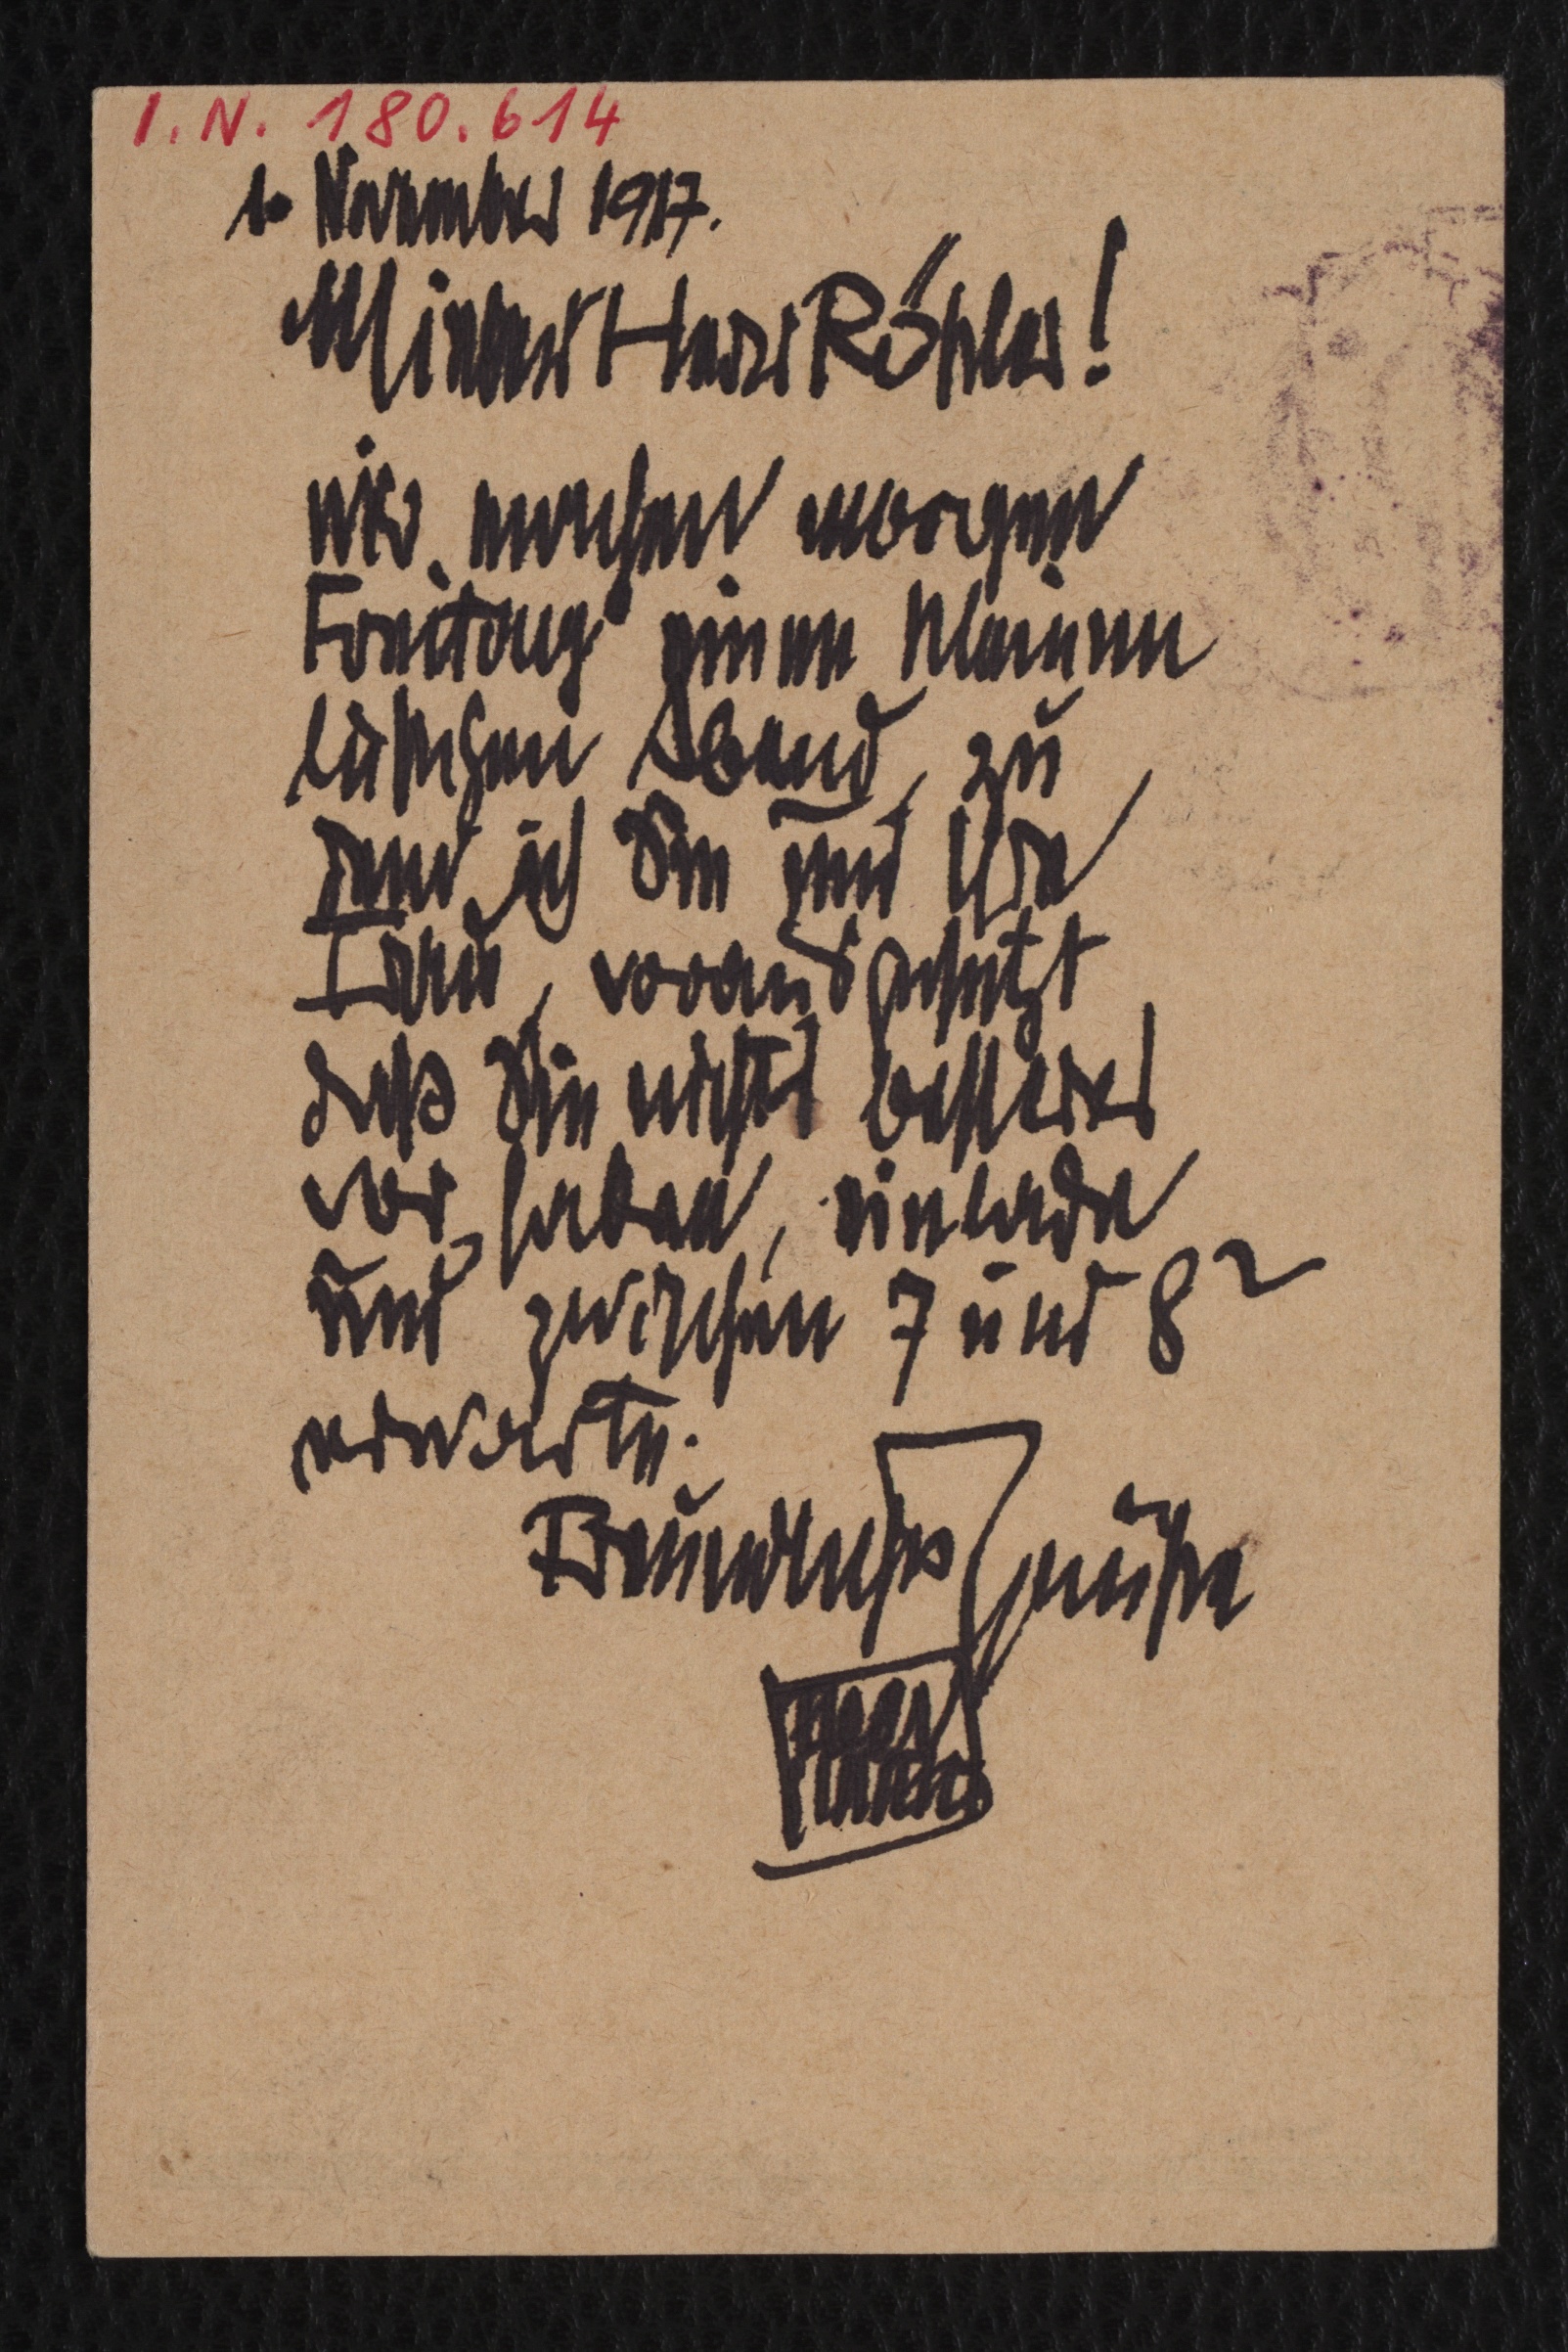 I.N. 180.614
1. November 1917.
Lieber Herr Rößler!
wir machen morgen
Freitag einen kleinen
lustigen Abend, zu
dem ich Sie und Ihre
Frau, vorausgesetzt
daß Sie nichts besseres
vor haben, einlade
und zwischen 7 und 8
erwarte.
Freundlichst grüße